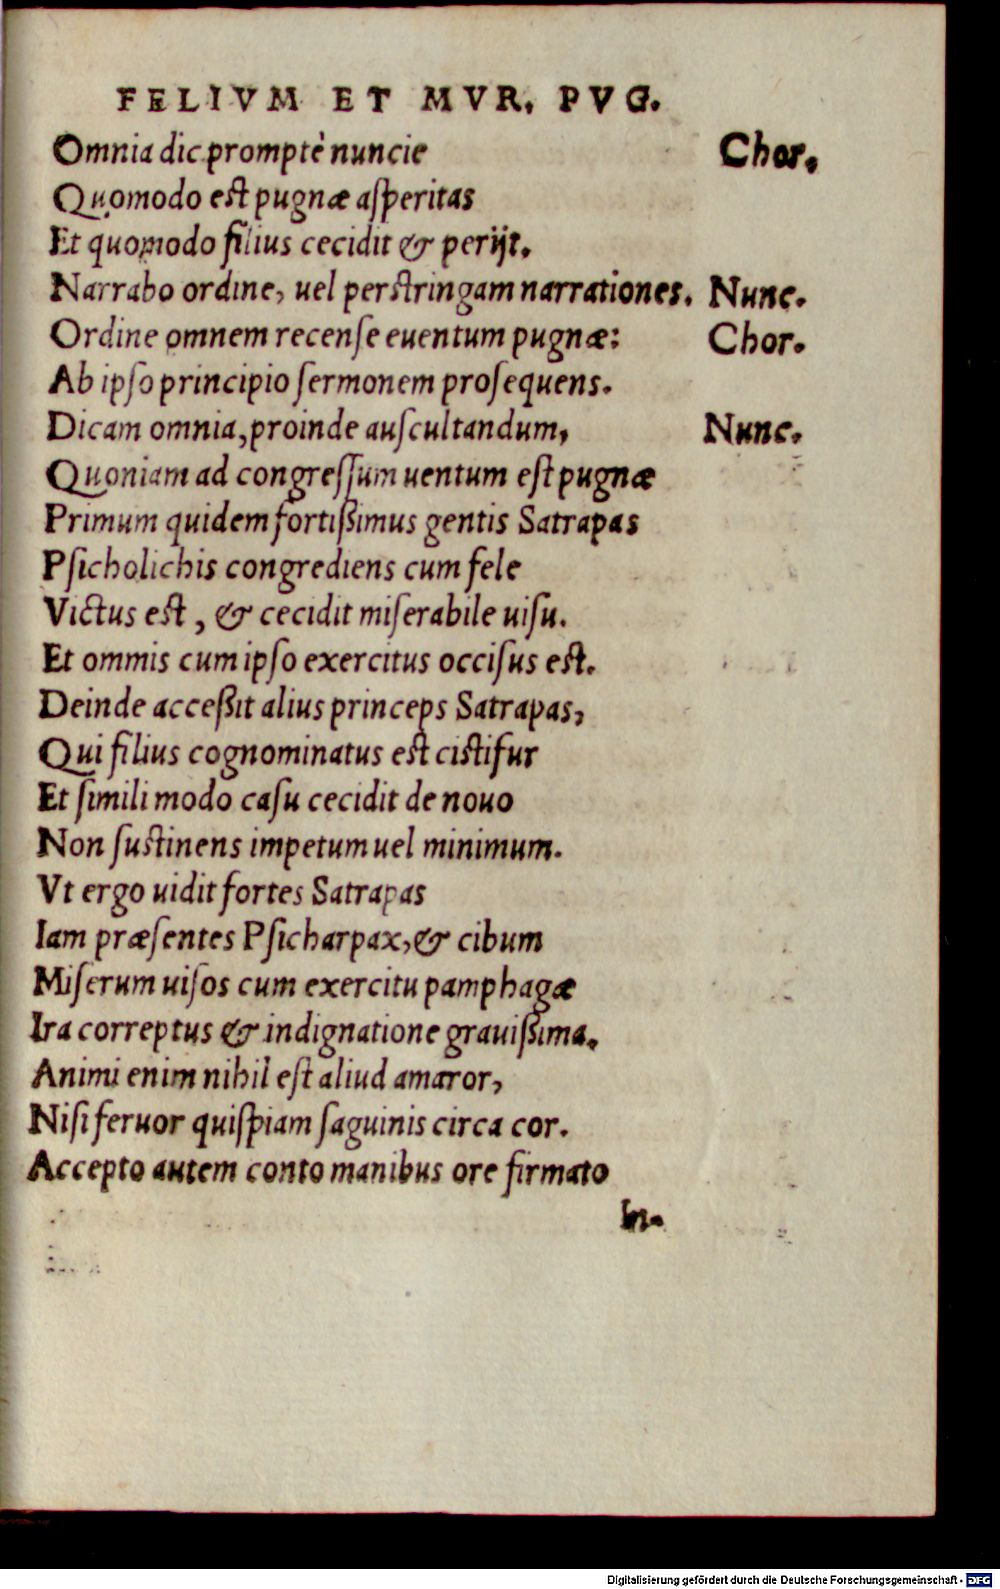 FELIVM ET MVR. PVG.
Omnia dic promptè nuncie Chor.
Quomodo est pugnæ aſperitas
Et quomodo filius cecidit & perijt.
Narrabo ordine, uel perstringam narrationes. Nunc.
Ordine omnem recenſe euentum pugnæ: Chor.
Ab ipſo principio ſermonem proſequens.
Dicam omnia, proinde auſcultandum, Nunc.
Quoniam ad congreſſum uentum eſt pugnæ
Primum quidem fortißimus gentis Satrapas
Pſicholichis congrediens cum fele
Victus est, & cecidit miſerabile uiſu.
Et ommis cum ipſo exercitus occiſus est.
Deinde acceßit alius princeps Satrapas,
Qui filius cognominatus est cistifur
Et ſimili modo caſu cecidit de nouo
Non ſustinens impetum uel minimum.
Vt ergo uidit fortes Satrapas
Iam præſentes Pſicharpax, & cibum
Miſerum uiſos cum exercitu pamphagæ
Ira correptus & indignatione grauißima.
Animi enim nihil eſt aliud amaror,
Niſi feruor quiſpiam ſaguinis circa cor.
Accepto autem conto manibus ore firmato
In-
Digitalisierung gefördert durch die Deutsche Forschungsgemeinschaft - DFG